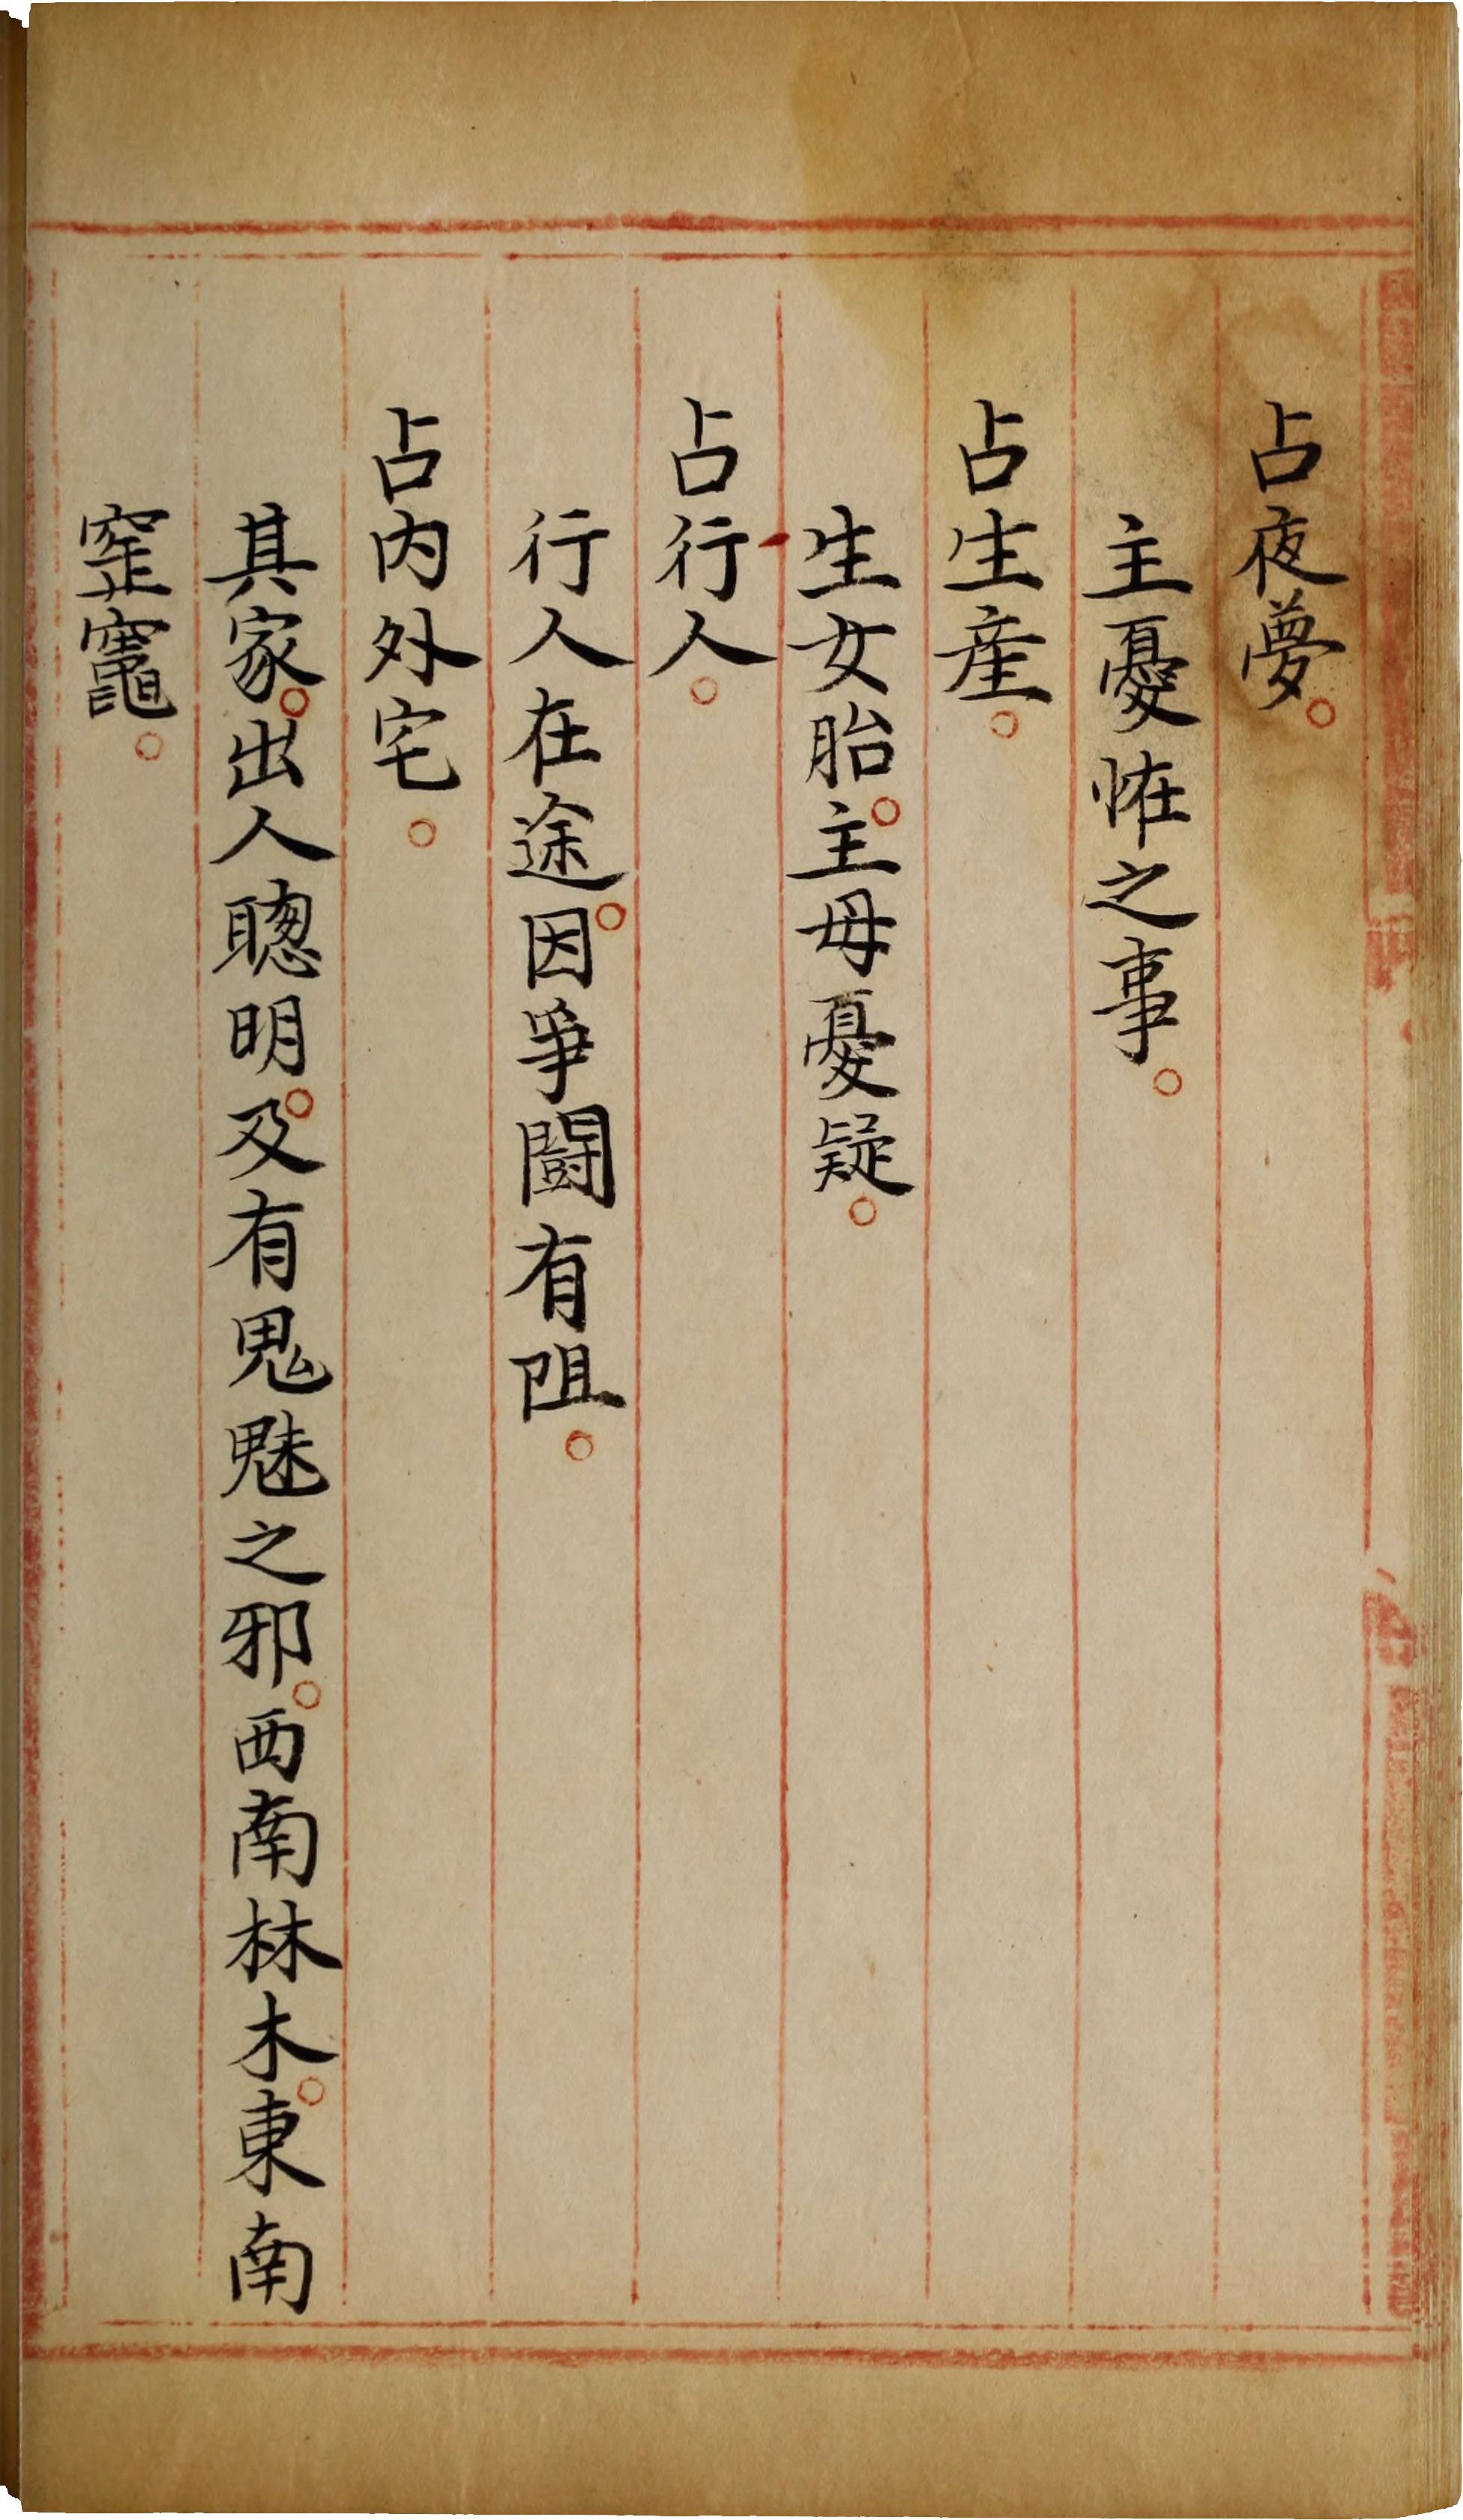 占夜夢。
主憂恠之事。
占生産。
生女胎。主母憂疑。
占行人。
行人在途。因爭鬪有阻。
占内外宅。
其家。出人聰明。及有鬼魅之邪。西南林木。東南
窰竈。